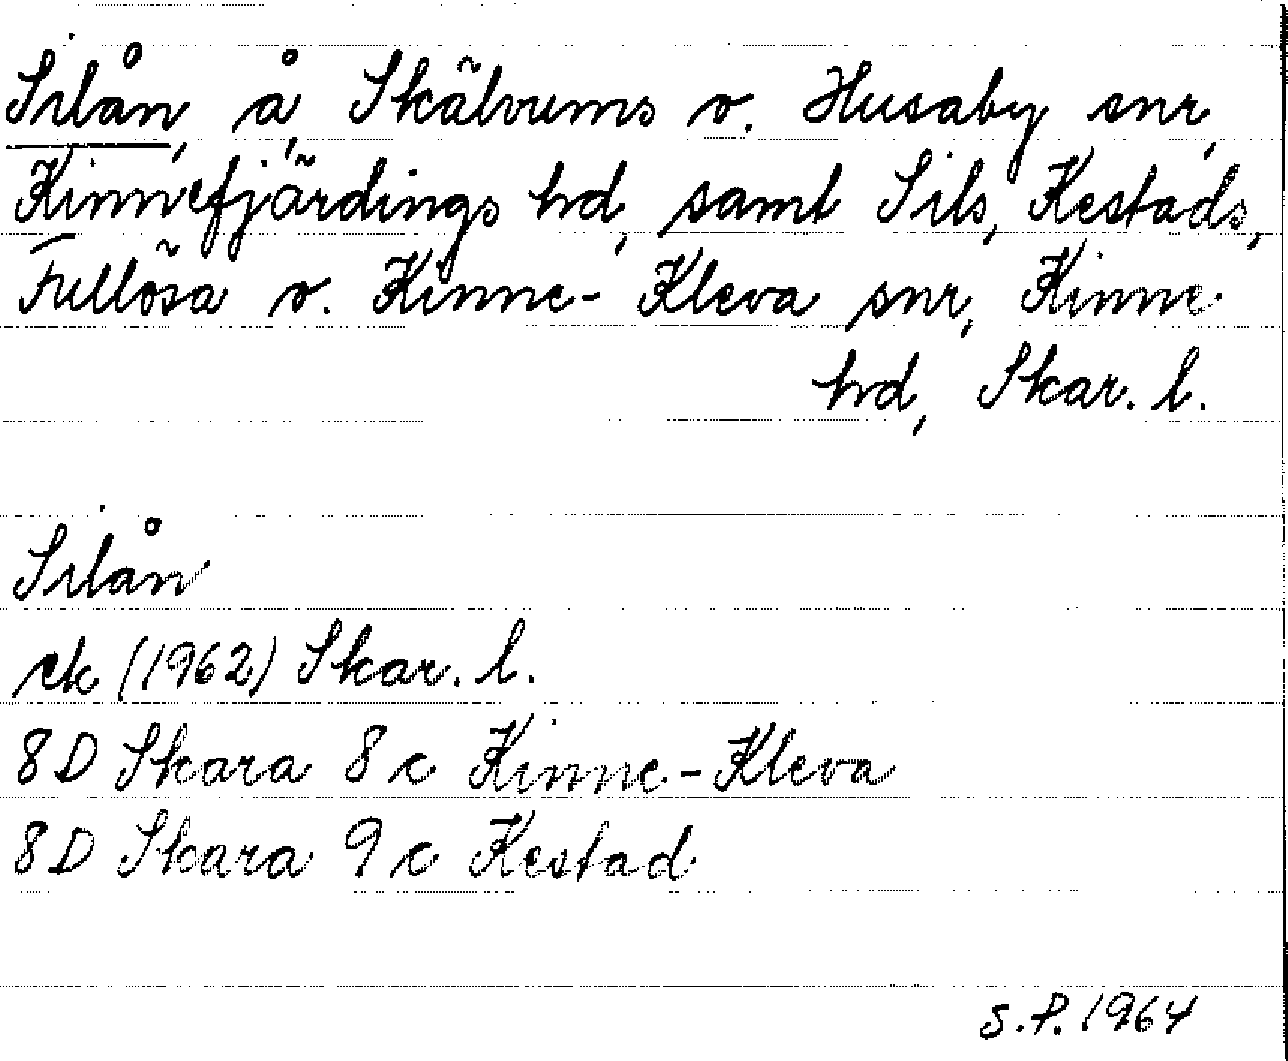 Silån, å, Skälvums o. Husaby snr,
Kinnefjärdings hd, samt Sils, Kestads,
Fullösa o. Kinne-Kleva snr, Kinne
hd, Skar. l.
Silån
ek (1962) Skar. l.
8D Skara 8 c Kinne-Kleva
8D Skara 9 c Kestad
S.P. 1964